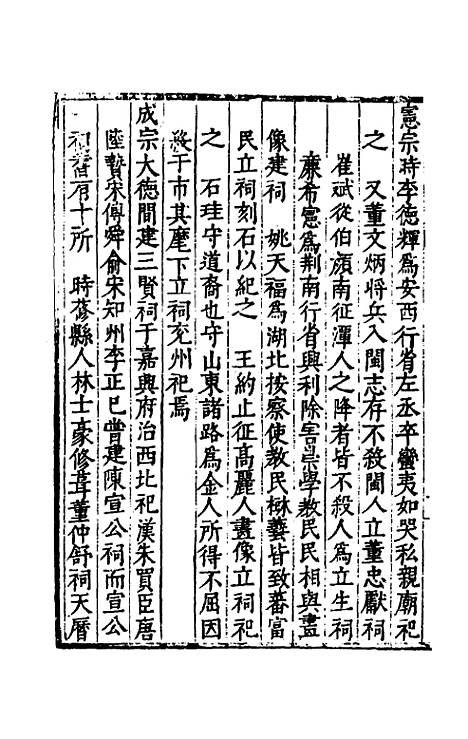 憲宗時李德輝爲安西行省左丞卒蠻夷如哭私親廟祀
之　又董文炳將兵入閩志存不殺閩人立董忠獻祠
崔斌從伯顔南征潭人之降者皆不殺人爲立生祠
廉希憲爲荆南行省興利除害崇學教民民相與畫
像建祠　姚天福爲湖北按察使教民樹藝皆致蕃富
民立祠刻石以紀之　王約止征髙麗人畫像立祠祀
之　石珪守道裔也守山東諸路爲金人所得不屈因
㷊于市其麾下立祠兖州祀焉
成宗大德間建三賢祠于嘉興府治西北祀漢朱買臣唐
陸贄宋傅舜俞宋知州李正巳嘗建陳宣公祠而宣公
祠舊有十所　時蓚縣人林士豪修葺董仲舒祠天曆